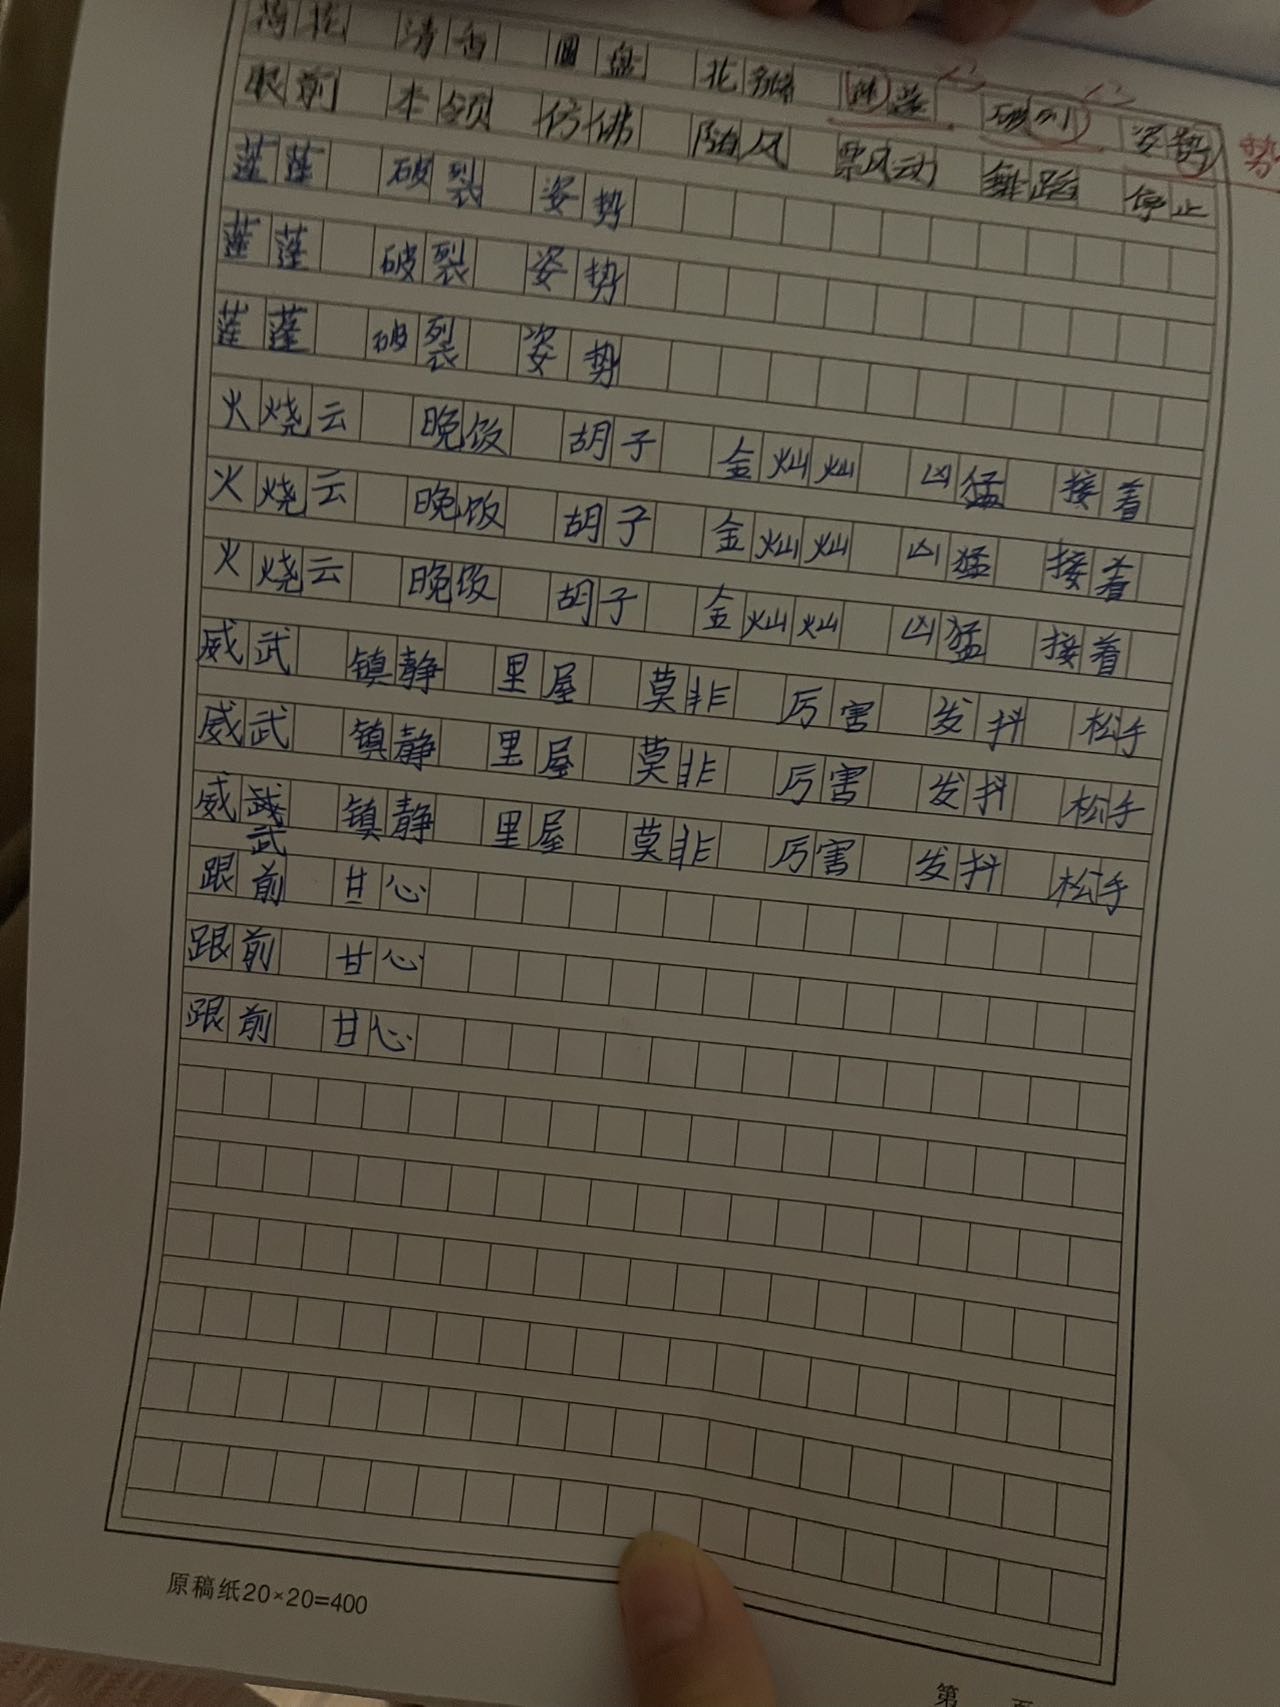 荷花 清香 圆盘 花瓣 莲蓬 破 姿势 势
眼前 本领 仿佛 随风 飘动 舞蹈 停止
莲蓬 破裂 姿势
莲蓬 破裂 姿势
莲蓬 破裂 姿势
火烧云 晚饭 胡子 金灿灿 凶猛 接着
火烧云 晚饭 胡子 金灿灿 凶猛 接着
火烧云 晚饭 胡子 金灿灿 凶猛 接着
威武 镇静 里屋 莫非 厉害 发抖 松手
威武 镇静 里屋 莫非 厉害 发抖 松手
威武 镇静 里屋 莫非 厉害 发抖 松手
武
跟前 甘心
跟前 甘心
跟前 甘心
原稿纸20×20=400
第 页